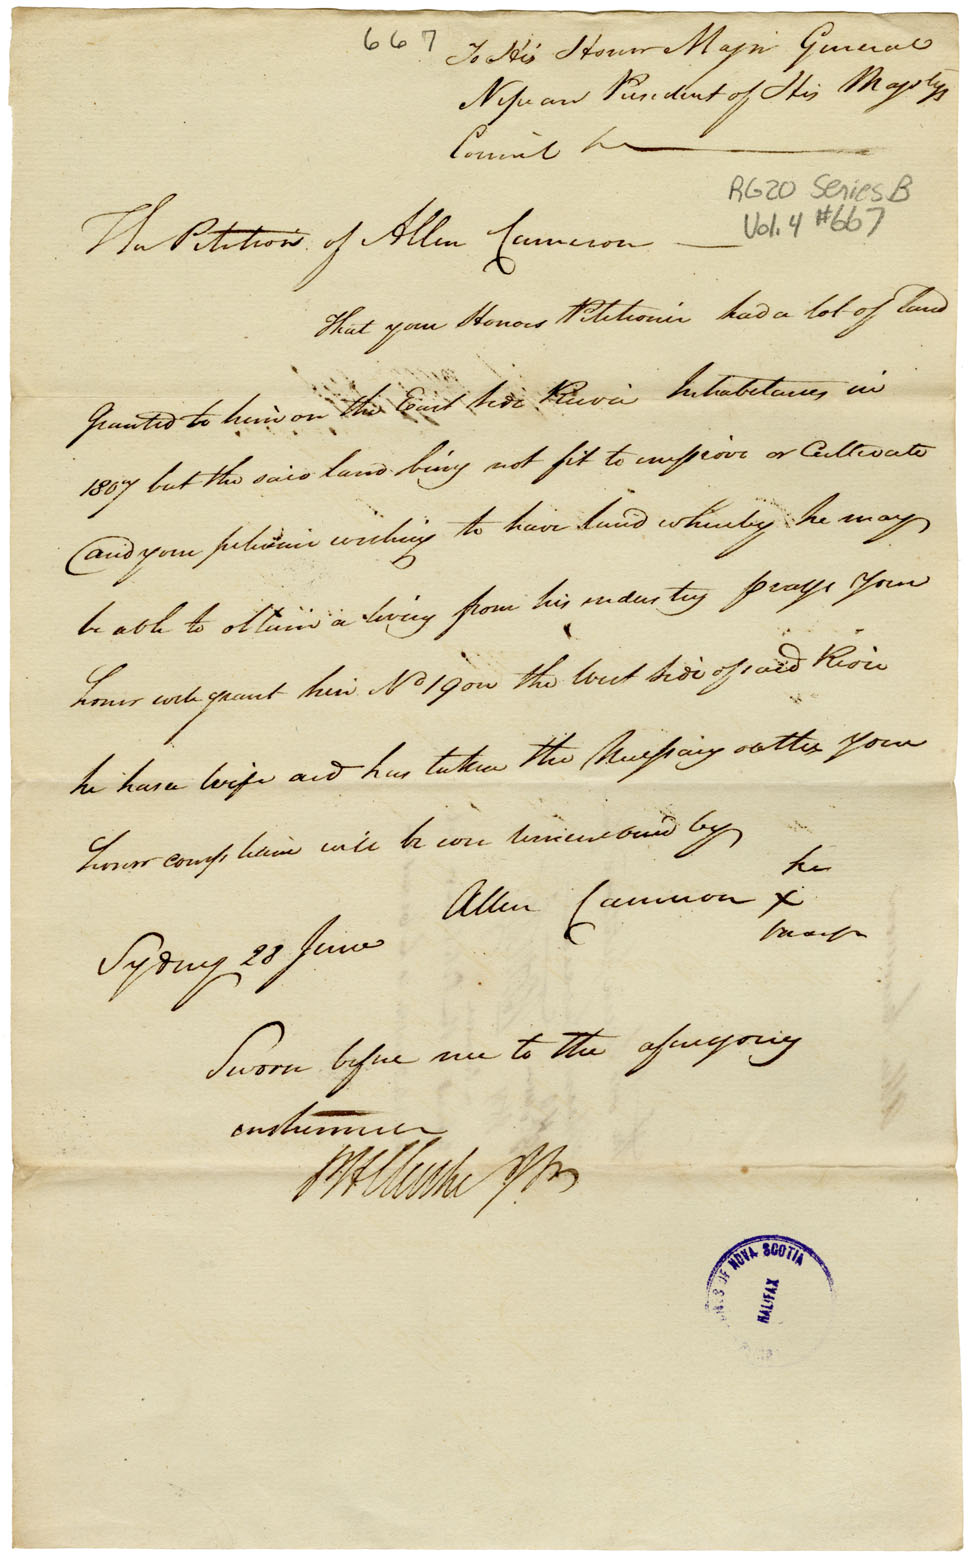 667
To His Honor Majr General
Nepean President of His Majestys
Council &c
RG20 Series B
Vol. 4 #667
The Petition of Allen Cameron
That your Honors Petitioner had a lot of land
Granted to him on the East side River Inhabitants in
1807 but the said land being not fit to improve or Cultivate
and your petitioner wishing to have land whereby he may
be able to obtain a living from his industry prays Your
Honor will grant him No 19 on the West side of said River
he has a wife and has taken the Necessary oathes Your
Honor compliance will be ever remembered by
his
Allen Cameron X
mark
Sydney 28 June
Sworn before me to the aforegoing
instrument
OF NOVA SCOTIA
HALIFAX